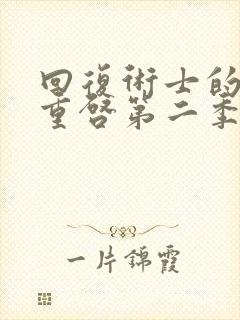 回復術士的
重啓第二季
一片錦霞